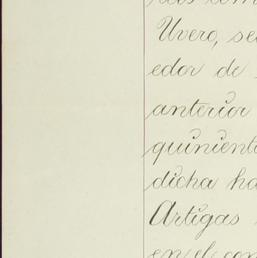 Uvero, se
edor de
anterior
quinient
dicha ha
Artigas
en el con